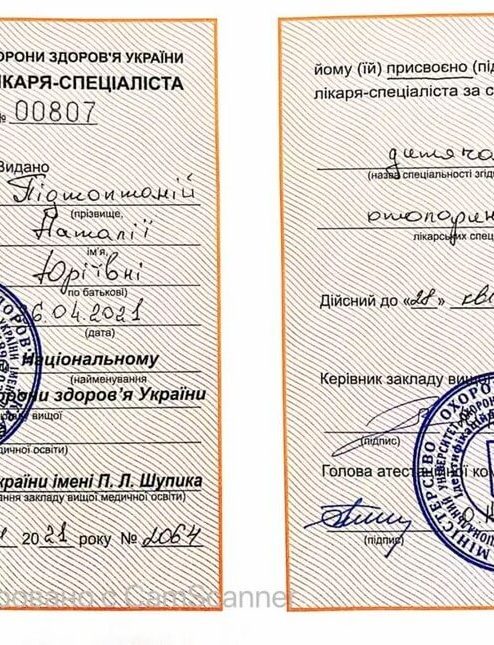 ОРОНИ ЗДОРОВ'Я УКРАЇНИ
ІКАРЯ-СПЕЦІАЛІСТА
№ 00807
Видано
Підтоптаній
(прізвище,
Наталії
ім'я,
Юріївні
по батькові)
26.04.2021
(дата)
Національному
(найменування
орони здоров'я України
вищої
дичної освіти)
країни імені П. Л. Шупика
ання закладу вищої медичної освіти)
2021 року № 2064
йому (їй) присвоєно (під
лікаря-спеціаліста за с
дитяча
(назва спеціальності згідн
отоларин
лікарських спец
Дійсний до «28» кві
Керівник закладу вищої
(підпис)
Голова атестаційної ко
(підпис)
МІНІСТЕРСТВО ОХОРО
УНІВЕРСИТЕТ ОХОРОН
Ідентифікаційн
ровано с CamScanner